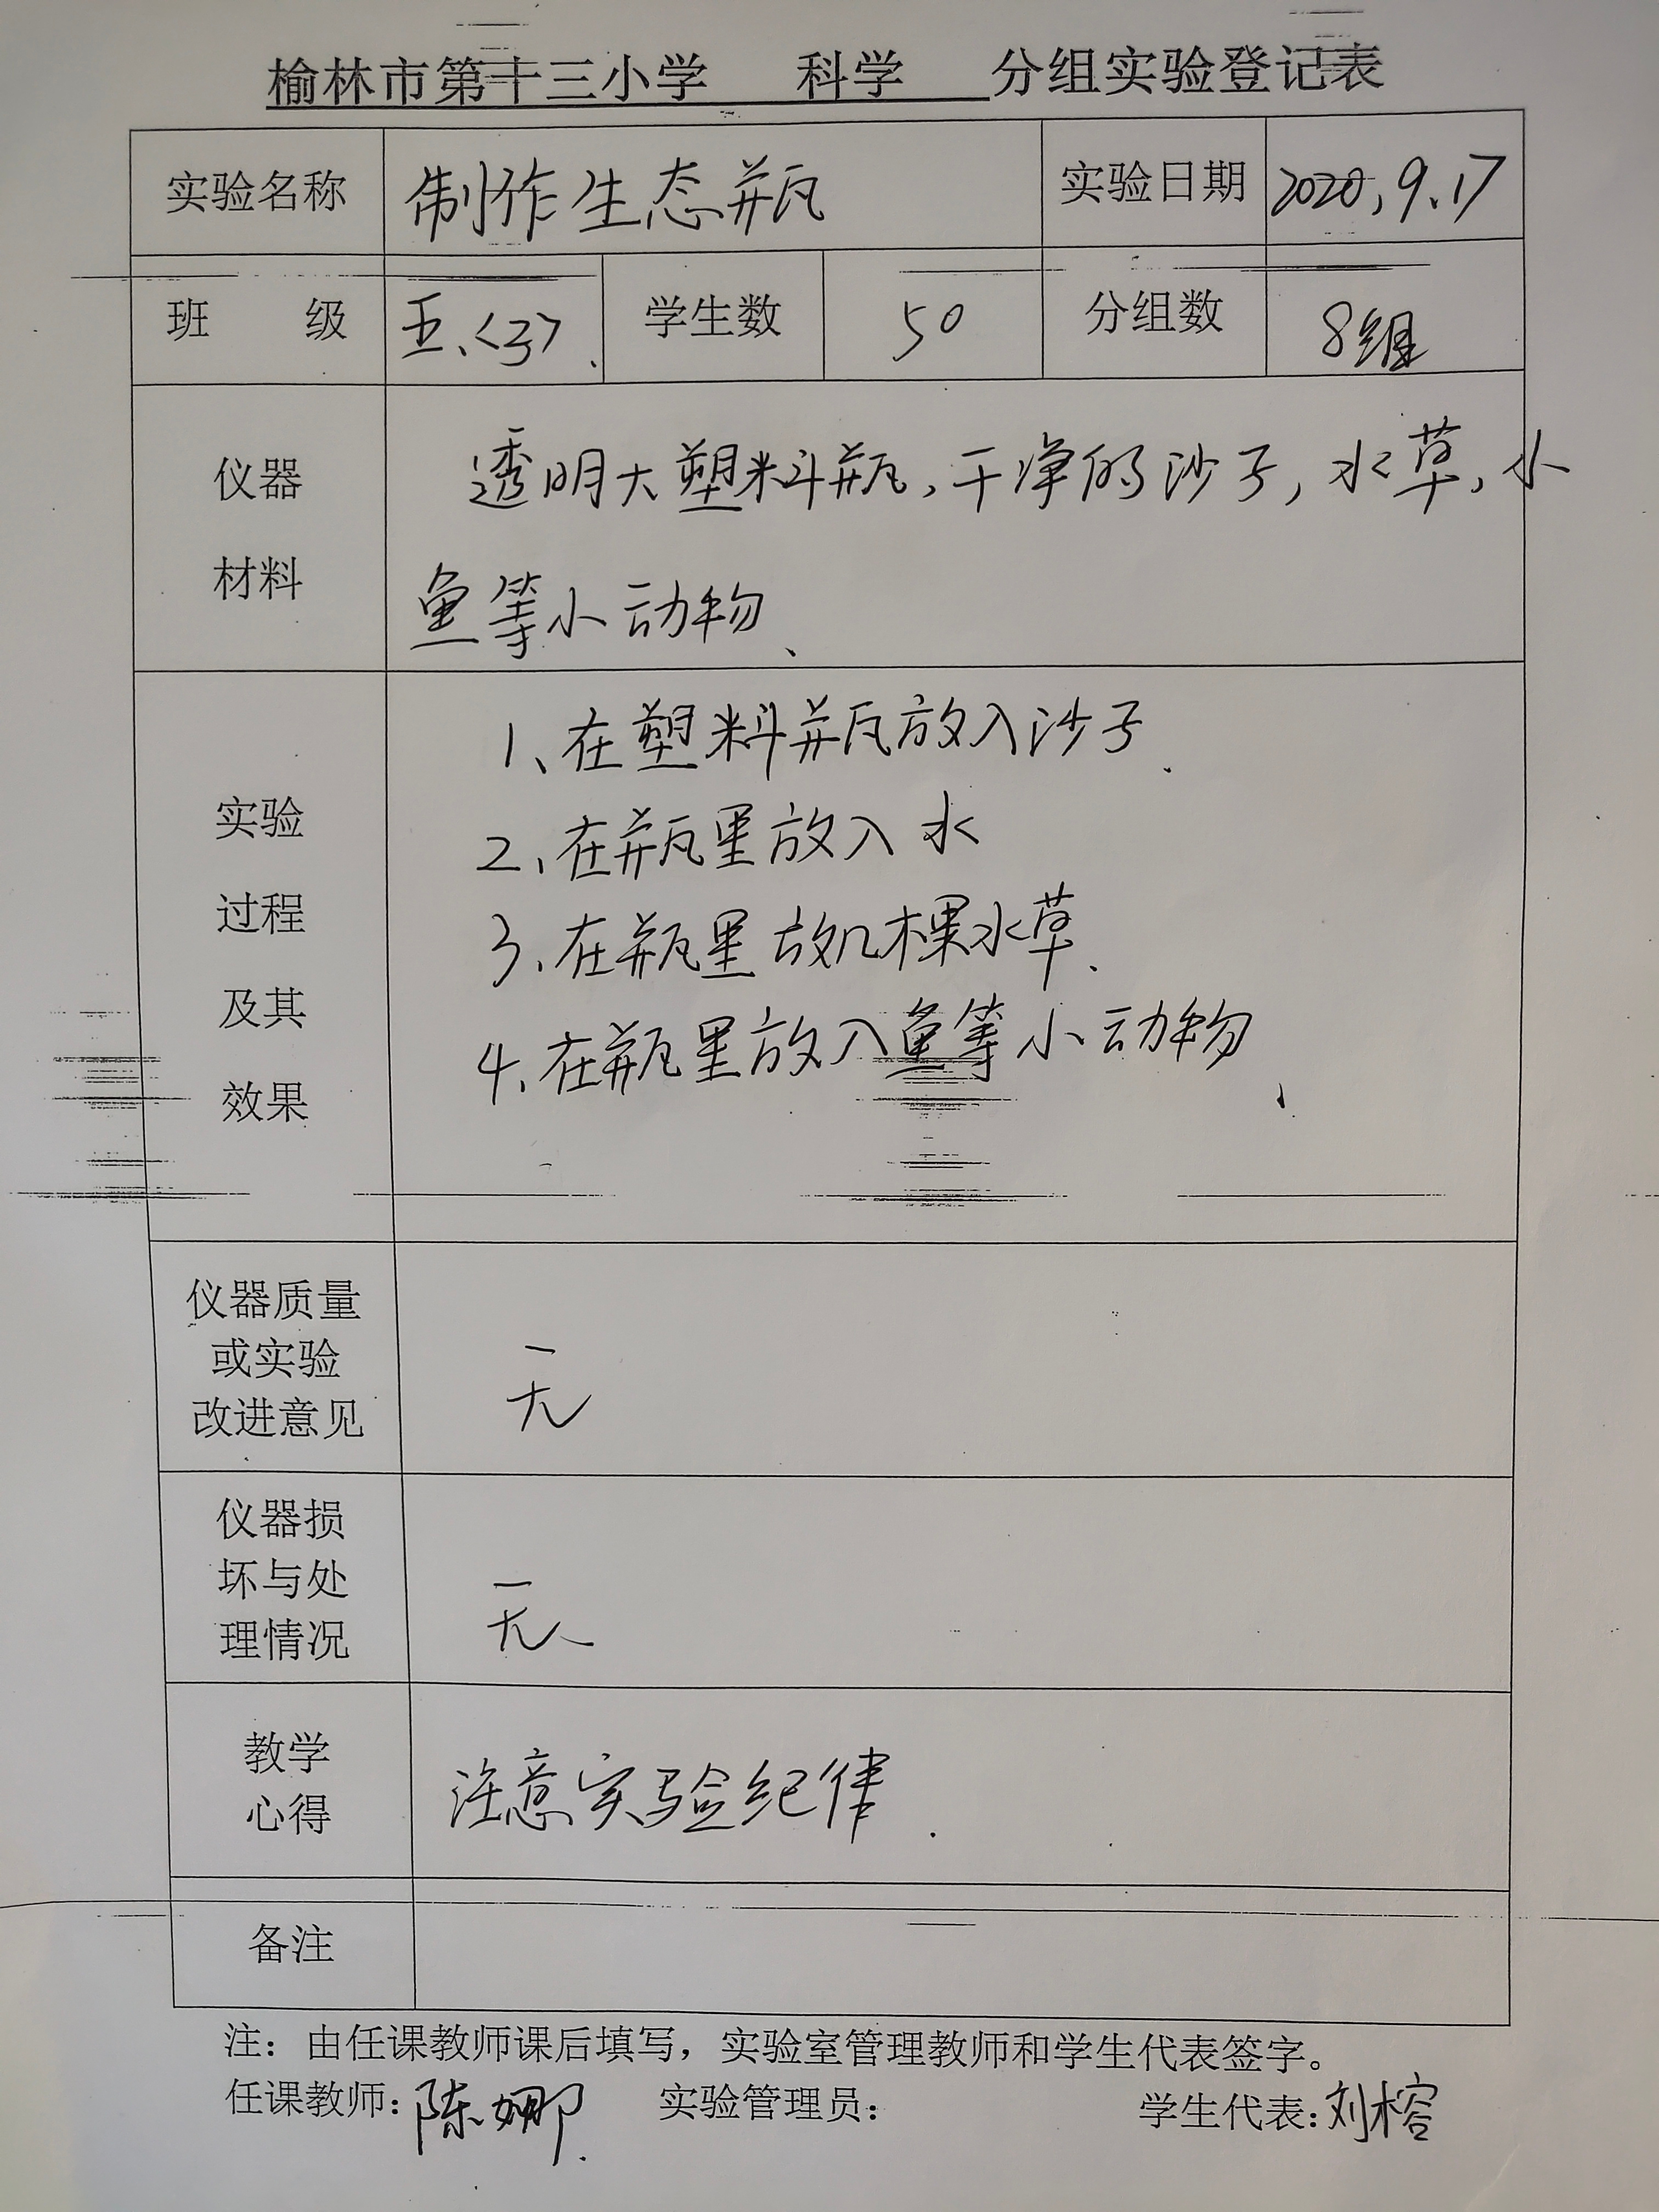 榆林市第十三小学 科学 分组实验登记表
实验名称 制作生态瓶 实验日期 2020.9.17
班 级 五.<3>. 学生数 50 分组数 8组
仪器
材料
透明大塑料瓶,干净的沙子,水草,小
鱼等小动物、
实验
过程
及其
效果
1、在塑料瓶放入沙子.
2、在瓶里放入水
3、在瓶里放几棵水草.
4、在瓶里放入鱼等小动物、
仪器质量
或实验
改进意见
无
仪器损
坏与处
理情况
无
教学
心得
注意实验纪律.
备注
注：由任课教师课后填写，实验室管理教师和学生代表签字。
任课教师：陈娜. 实验管理员： 学生代表：刘榕